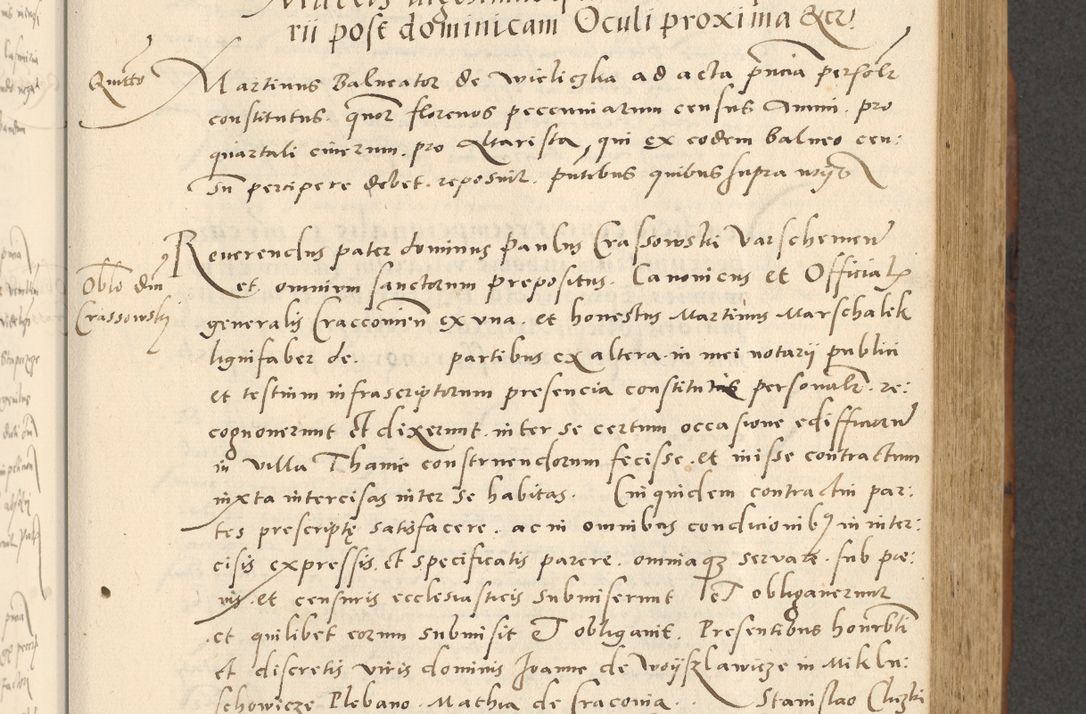 rii post dominicam Oculi proxima &cr
Quitto
Martinus Balneator de Wieliczka ad acta pncia persolr
constitutus. quor florenos peccuniarum census Anni. pro
quartali cinerum. pro Altarista, qui ex eodem balneo cen:
sū percipere debet. reposuit. putibus quibus supra
Reverendus pater dominus Paulus Crassowski Varschemen
Oblo dni
Crassowskj
et omnium sanctorum prepositus. Canonicus et Officialis
generalis Cracconien ex vna. et honestus Martinus Marschalek
lignifaber de. partibus ex altera. in mei notarij publici
et testium infrascriptorum presencia constitutis personalr. re:
cognouerunt et dixerunt. inter se certum occasione edifficiorū
in villa Thanie construendorum fecisse. et inisse contractum
iuxta intercisas inter se habitas. Cui quidem contractui par:
tes prescriptę satisfacere. ac in omnibus condicionibus in inter:
cisis expressis. et specificatis parere. omniaque servare. sub pœ:
nis. et censuris ecclesiasticis submiserunt et obligauerunt
.et quilibet eorum submisit et obligauit. Presentibus honrbti
et discretis viris dominis Joanne de Woijszlawicze in Miklu:
schowicze Plebano. Mathia de Craconia . . Stanislao